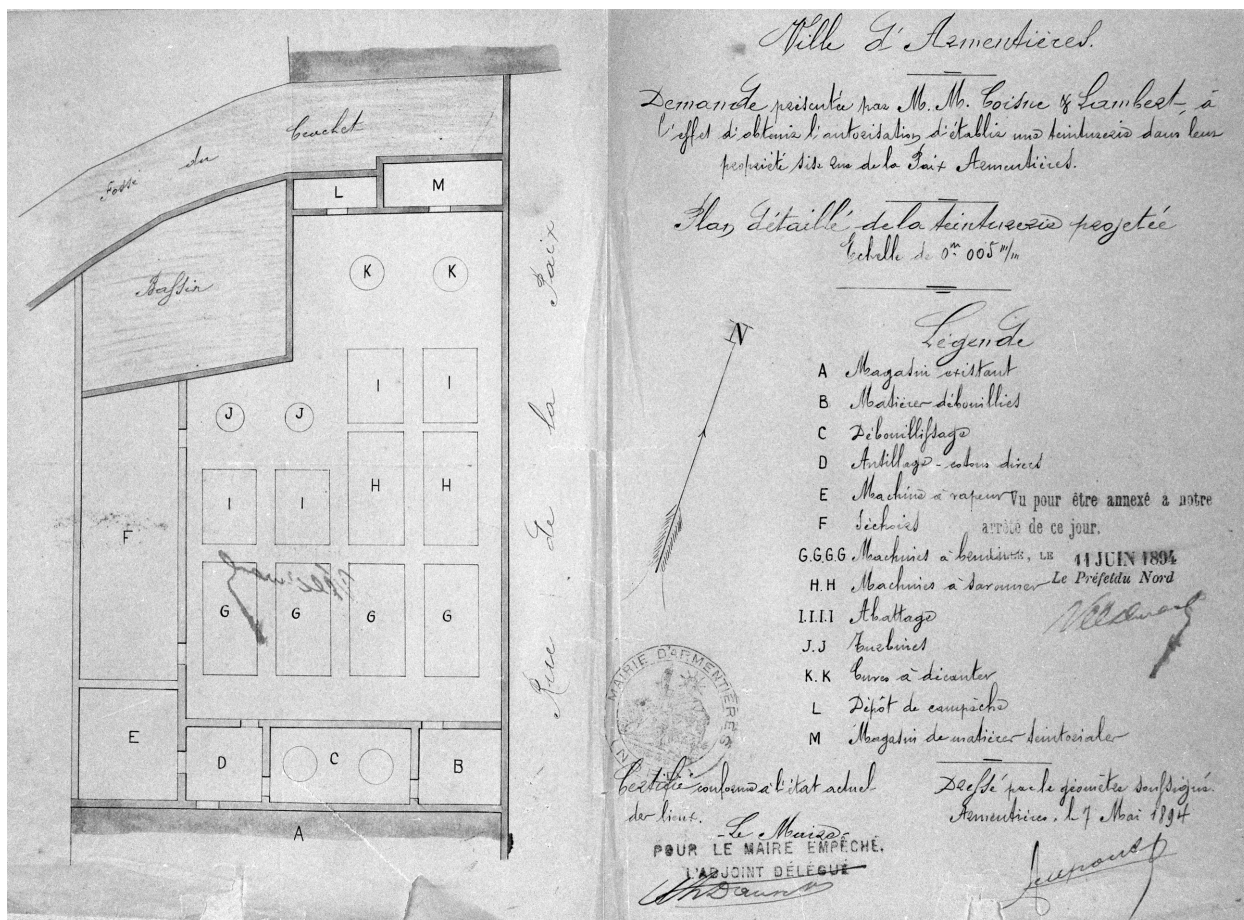 Fossé
du
Crachet
Bassin
L
M
K
K
I
I
J
J
I
I
H
H
F
G
G
G
G
E
D
C
B
A
Rue de la Paix
Ville d'Armentières.
Demande présentée par M.M. Coisne & Lambert, à
l'effet d'obtenir l'autorisation d'établir une teinturerie dans leur
propriété sise rue de la Paix Armentières.
Plan détaillé de la teinturerie projetée
Echelle de 0m 005 m/m
N
Légende
A Magasin existant
B Matières débouillies
C Débouillissage
D cotons divers
E Machine à vapeur
F Séchoirs
G.G.G.G Machines à
H.H Machines à savonner
I.I.I.I Abattage
J.J Turbines
K.K Cuves à décanter
L Dépôt de campêche
M Magasin de matières tinctoriales
Vu pour être annexé a notre
arrêté de ce jour.
LE 11 JUIN 1894
Le Préfet du Nord
MAIRIE D'ARMENTIÈRES
Certifié conforme à l'état actuel
des lieux.
Le Maire
POUR LE MAIRE EMPÊCHÉ,
L'ADJOINT DÉLÉGUÉ
Dressé par le géomètre soussigné.
Armentières. l 7 Mai 1894